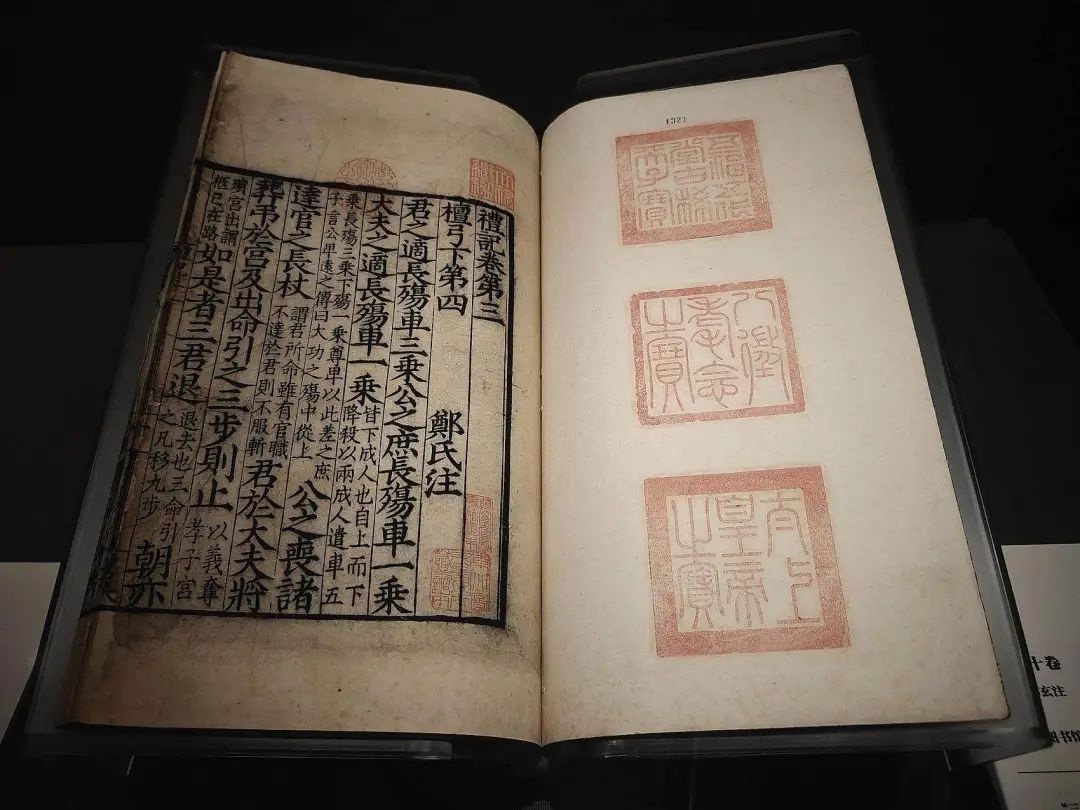 1321
五福五代堂古稀天子寶
八徵耄念之寶
太上皇帝之寶
禮記卷第三
檀弓下第四 鄭氏注
君之適長殤車三乘公之庶長殤車一乘
大夫之適長殤車一乘 皆下成人也自上而下降殺以兩成人遣車五
乘長殤三乘下殤一乘尊卑以此差之庶子言公卑遠之傳曰大功之殤中從上 公之喪諸
達官之長杖 謂君所命雖有官職不達於君則不服斬 君於大夫將
葬弔於宮及出命引之三步則止 以義奪孝子宮
殯宮出謂柩已在路 如是者三君退 退去也三命引之凡移九步 朝亦
十卷
玄注
图书馆